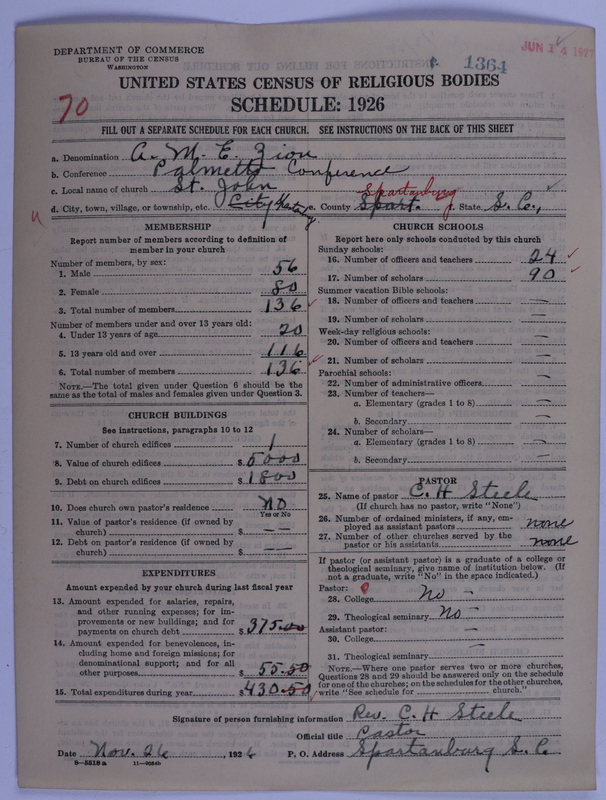 DEPARTMENT OF COMMERCE
BUREAU OF THE CENSUS
WASHINGTON
1364
JUN 14 1927
UNITED STATES CENSUS OF RELIGIOUS BODIES
SCHEDULE: 1926
70
FILL OUT A SEPARATE SCHEDULE FOR EACH CHURCH. SEE INSTRUCTIONS ON THE BACK OF THIS SHEET
a. Denomination A. M. E. Zion
b. Conference Palmetto Conference
c. Local name of church St. John
d. City, town, village, or township, etc. City e. County Spart. Spartanburg f. State S. C.,
MEMBERSHIP
Report number of members according to definition of member in your church
Number of members, by sex:
1. Male 56
2. Female 80
3. Total number of members 136
Number of members under and over 13 years old:
4. Under 13 years of age 20
5. 13 years old and over 116
6. Total number of members 136
NOTE.—The total given under Question 6 should be the same as the total of males and females given under Question 3.
CHURCH BUILDINGS
See instructions, paragraphs 10 to 12
7. Number of church edifices 1
8. Value of church edifices $ 5000
9. Debt on church edifices $ 1800
10. Does church own pastor's residence No
Yes or No
11. Value of pastor's residence (if owned by church) $ — —
12. Debt on pastor's residence (if owned by church) $ — —
EXPENDITURES
Amount expended by your church during last fiscal year
13. Amount expended for salaries, repairs, and other running expenses; for improvements or new buildings; and for payments on church debt $ 375.00
14. Amount expended for benevolences, including home and foreign missions; for denominational support; and for all other purposes $ 55.50
15. Total expenditures during year $ 430.50
CHURCH SCHOOLS
Report here only schools conducted by this church
Sunday schools:
16. Number of officers and teachers 24
17. Number of scholars 90
Summer vacation Bible schools:
18. Number of officers and teachers —
19. Number of scholars —
Week-day religious schools:
20. Number of officers and teachers —
21. Number of scholars —
Parochial schools:
22. Number of administrative officers —
23. Number of teachers—
a. Elementary (grades 1 to 8) —
b. Secondary —
24. Number of scholars—
a. Elementary (grades 1 to 8) —
b. Secondary —
PASTOR
25. Name of pastor C. H Steele
(If church has no pastor, write "None")
26. Number of ordained ministers, if any, employed as assistant pastors none
27. Number of other churches served by the pastor or his assistants none
If pastor (or assistant pastor) is a graduate of a college or theological seminary, give name of institution below. (If not a graduate, write "No" in the space indicated.)
Pastor: 0
28. College No —
29. Theological seminary No —
Assistant pastor: —
30. College —
31. Theological seminary
NOTE.—Where one pastor serves two or more churches, Questions 28 and 29 should be answered only on the schedule for one of the churches; on the schedules for the other churches, write "See schedule for church."
Signature of person furnishing information Rev. C. H Steele
Official title Pastor
Date Nov. 26, 1926 P. O. Address Spartanburg S. C
8—5518a 11—9084b